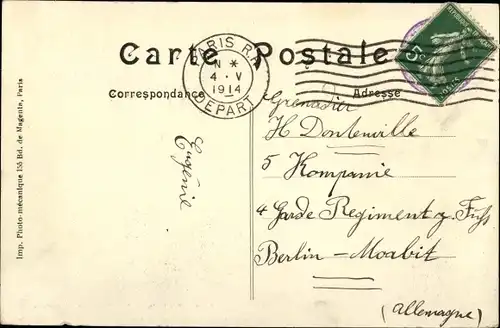 Carte Postale
PARIS R.P.
N *
4 · V
1914
DEPART
Correspondance
Adresse
Grenadier
H Dontenville
5 Kompanie
4 Garde Regiment z. Fuß
Berlin - Moabit
(Allemagne)
Eugénie
Imp. Photo-mécanique 155 Bd. de Magenta, Paris
5c